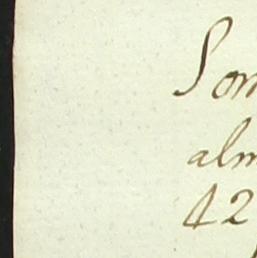 Som
alm
42